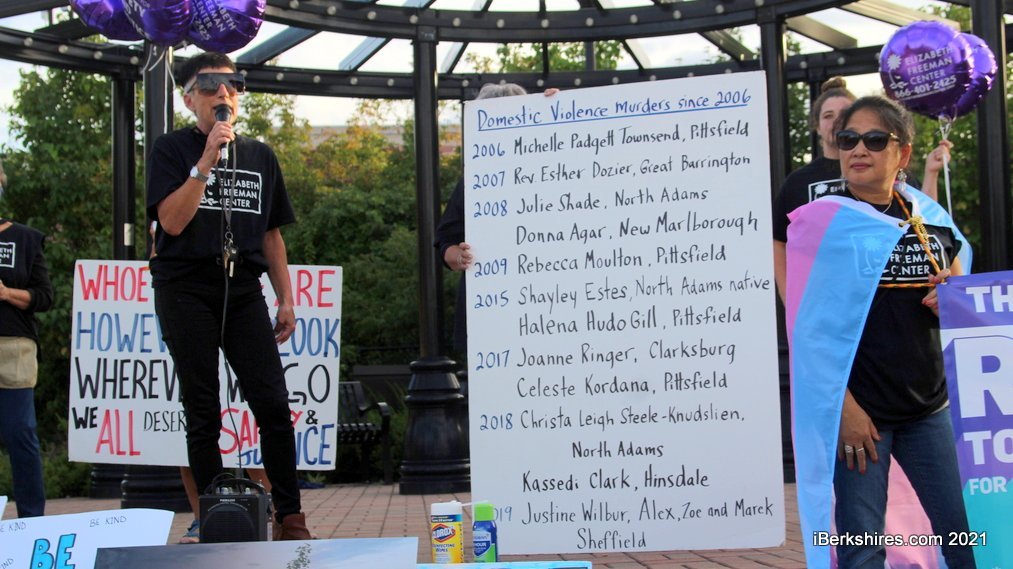 ELIZABETH
FREEMAN
CENTER
Domestic Violence Murders since 2006
2006 Michelle Padgett Townsend, Pittsfield
2007 Rev Esther Dozier, Great Barrington
2008 Julie Shade, North Adams
Donna Agar, New Marlborough
2009 Rebecca Moulton, Pittsfield
2015 Shayley Estes, North Adams native
Halena Hudo Gill, Pittsfield
2017 Joanne Ringer, Clarksburg
Celeste Kordana, Pittsfield
2018 Christa Leigh Steele-Knudslien,
North Adams
Kassedi Clark, Hinsdale
Justine Wilbur, Alex, Zoe and Marek
Sheffield
ELIZABETH
FREEMAN
CENTER
866-401-2425
ELIZABETH
FREEMAN
CENTER
ARE
LOOK
GO
WE ALL
&
TH
R
TO
FOR
BE KIND
BE KIND
BE
CLOROX
iBerkshires.com 2021